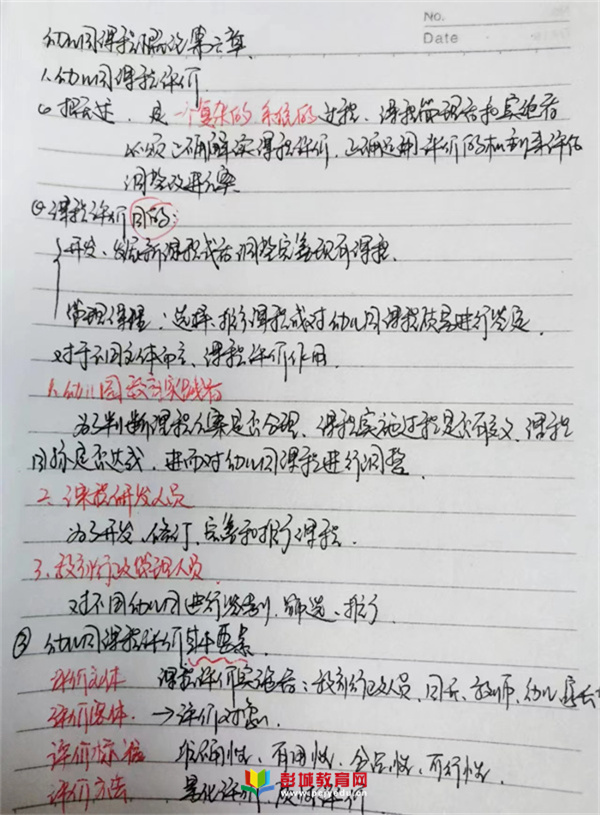 No.
Date
幼儿园课程概论第六章
1.幼儿园课程评价
① 概述：是一个复杂的系统的过程，课程管理者和实施者
必须正确解读课程评价，正确运用评价的机制来评估
调整改进方案
② 课程评价目的：
开发、发展新课程或者调整完善现有课程.
管理课程：选择、推行课程或对幼儿园课程质量进行鉴定.
对于不同主体而言、课程评价作用.
1.幼儿园教育实践者
为了判断课程方案是否合理、课程实施过程是否有意义、课程
目标是否达成，进而对幼儿园课程进行调整
2.课程研发人员
为了开发、修订、完善和推行课程.
3.教育行政管理人员
对不同幼儿园进行鉴别、筛选、推行
③ 幼儿园课程评价基本要素.
评价主体 课程评价实施者：教育行政人员、园长、教师、幼儿、家长
评价客体 →评价对象.
评价标准 准确性、有用性、合法性、可行性.
评价方法 量化评价、质性评价
彭城教育网